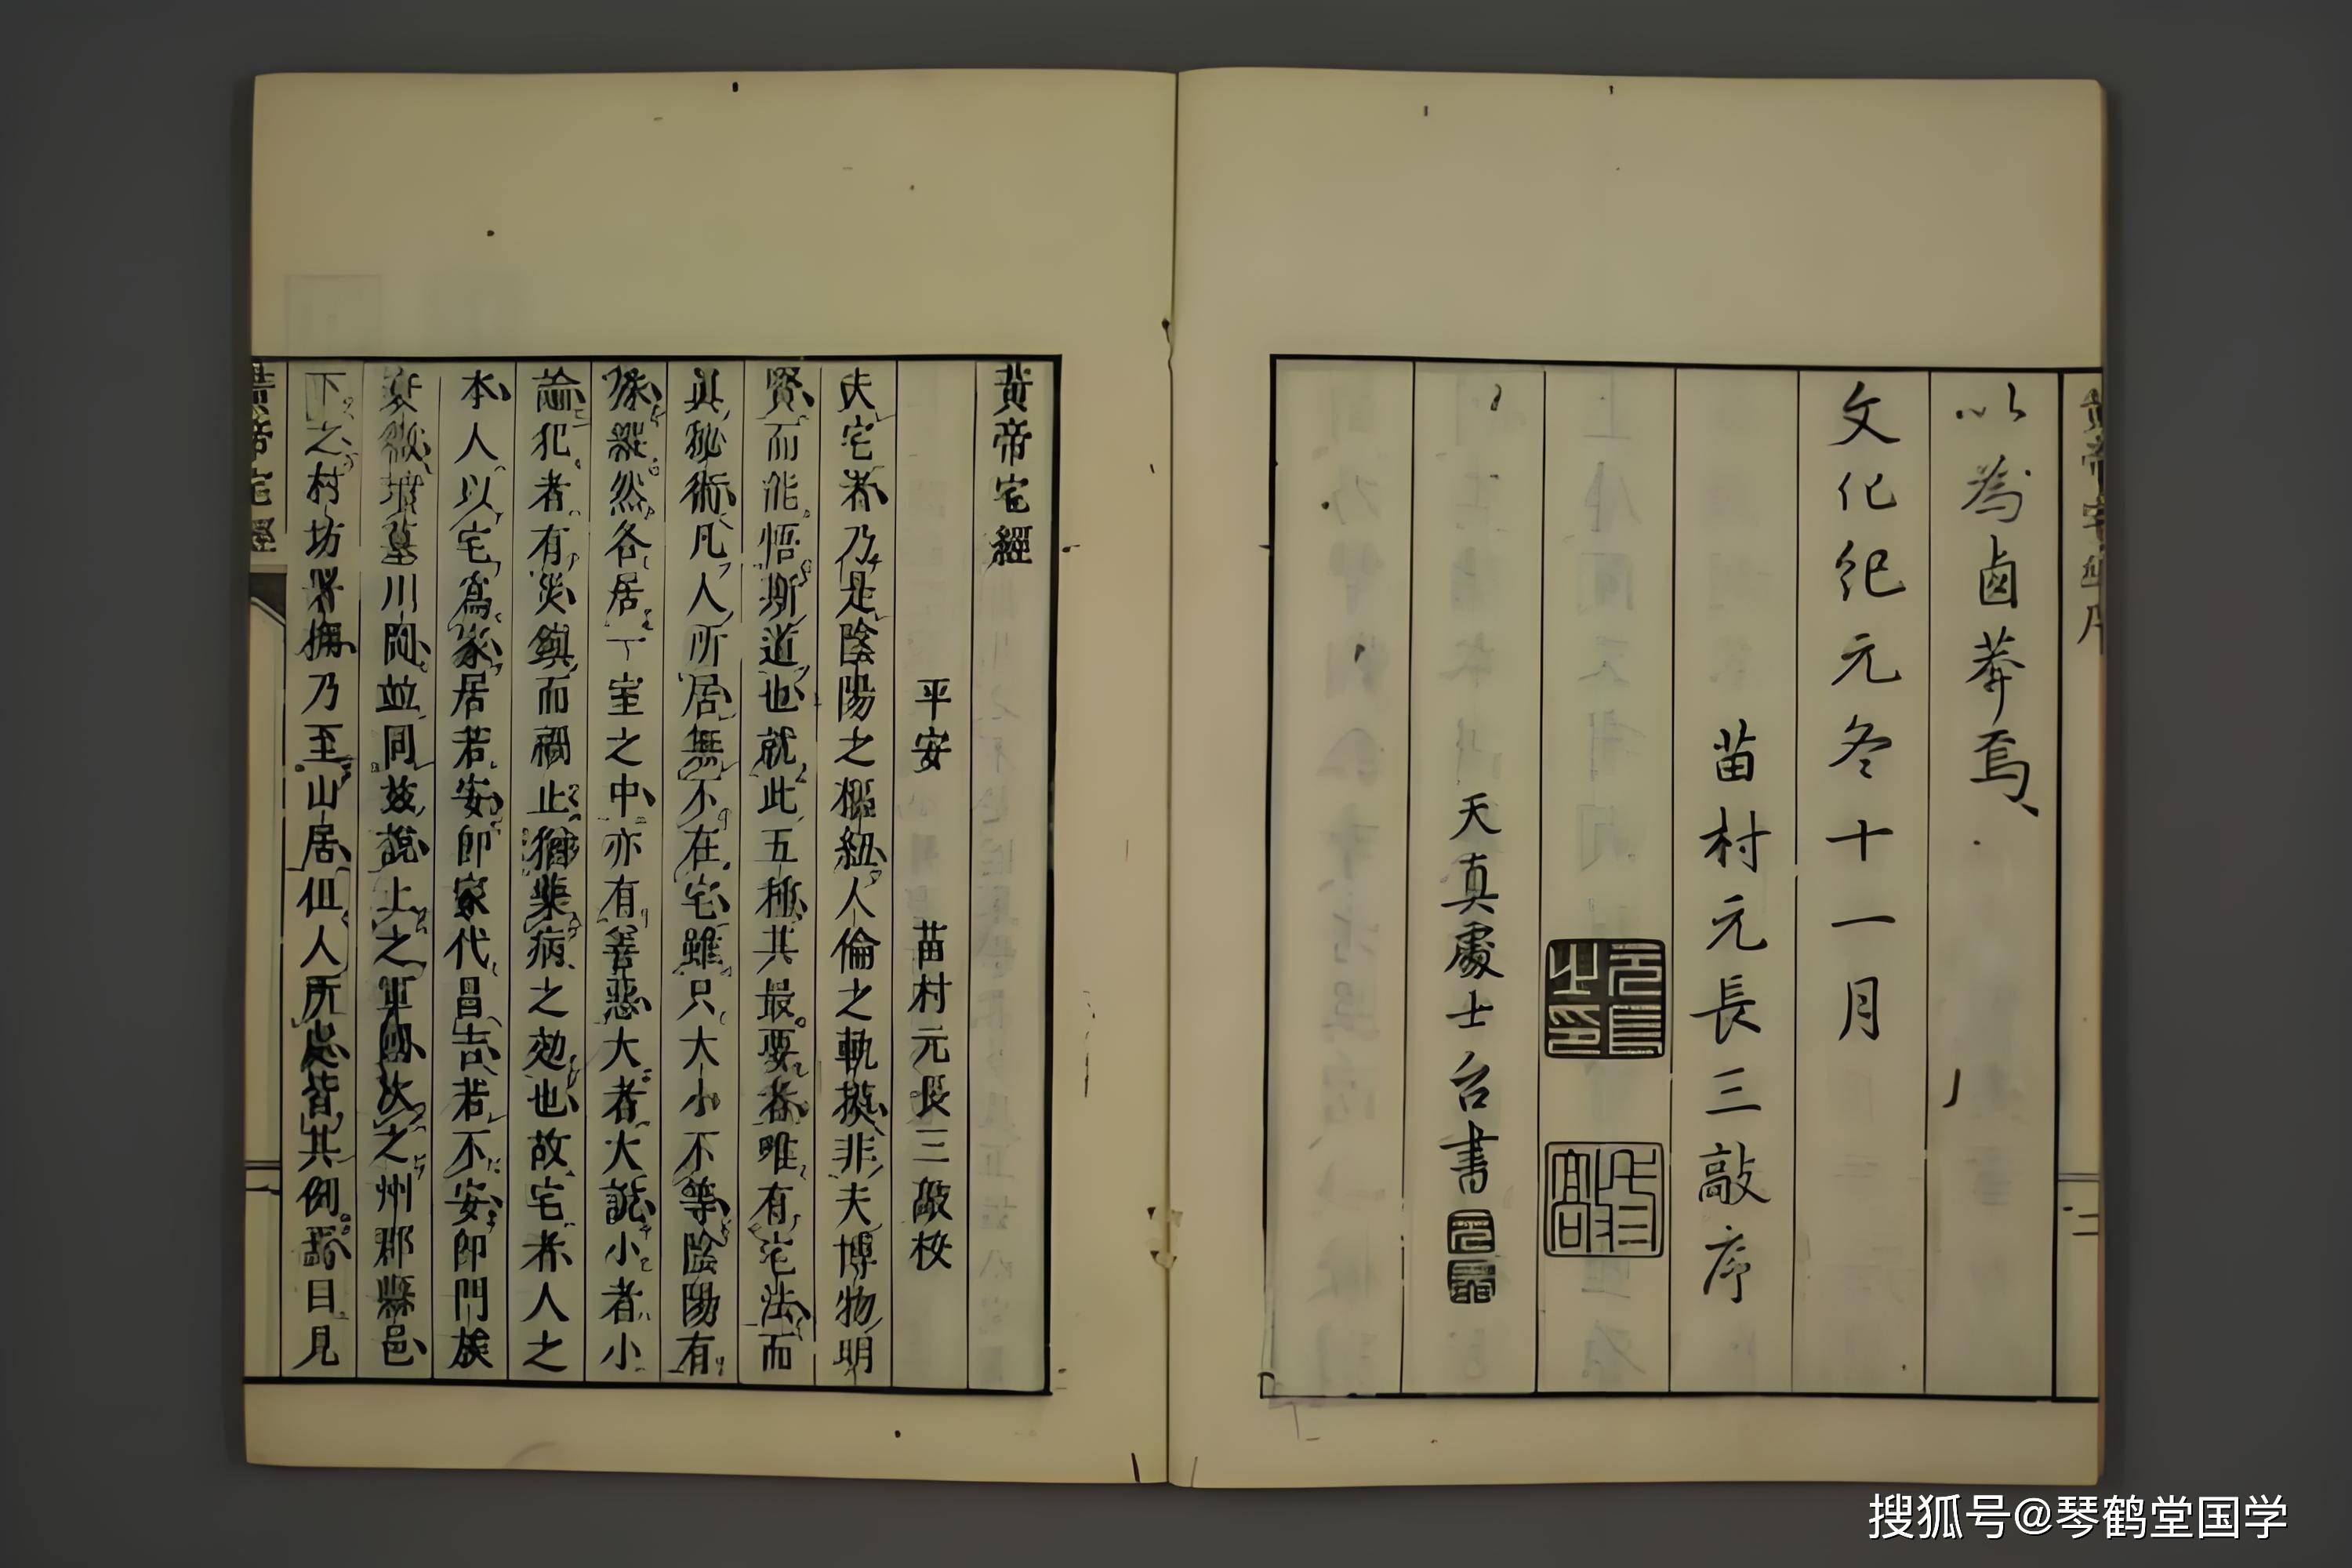 黄帝宅經序
以為鹵莽焉
文化紀元冬十一月
苗村元長三敲序
元長之印
天真處士台書
二
黄帝宅經
平安　苗村元長三敲校
夫宅者乃是陰陽之樞紐人倫之軌模非夫博物明
賢而能悟斯道也就此五種其最要者唯有宅法而
真秘術凡人所居無不在宅雖只大小不等陰陽有
殊縱然客居一室之中亦有善惡大者大說小者小
論犯者有災鎮而禍止猶藥病之効也故宅者人之
本人以宅爲家居若安即家代昌吉若不安即門族
衰微墳墓川岡並同茲說上之軍國次之州郡縣邑
下之村坊署柵乃至山居但人所處皆其例目見
黄帝宅經
搜狐号@琴鹤堂国学